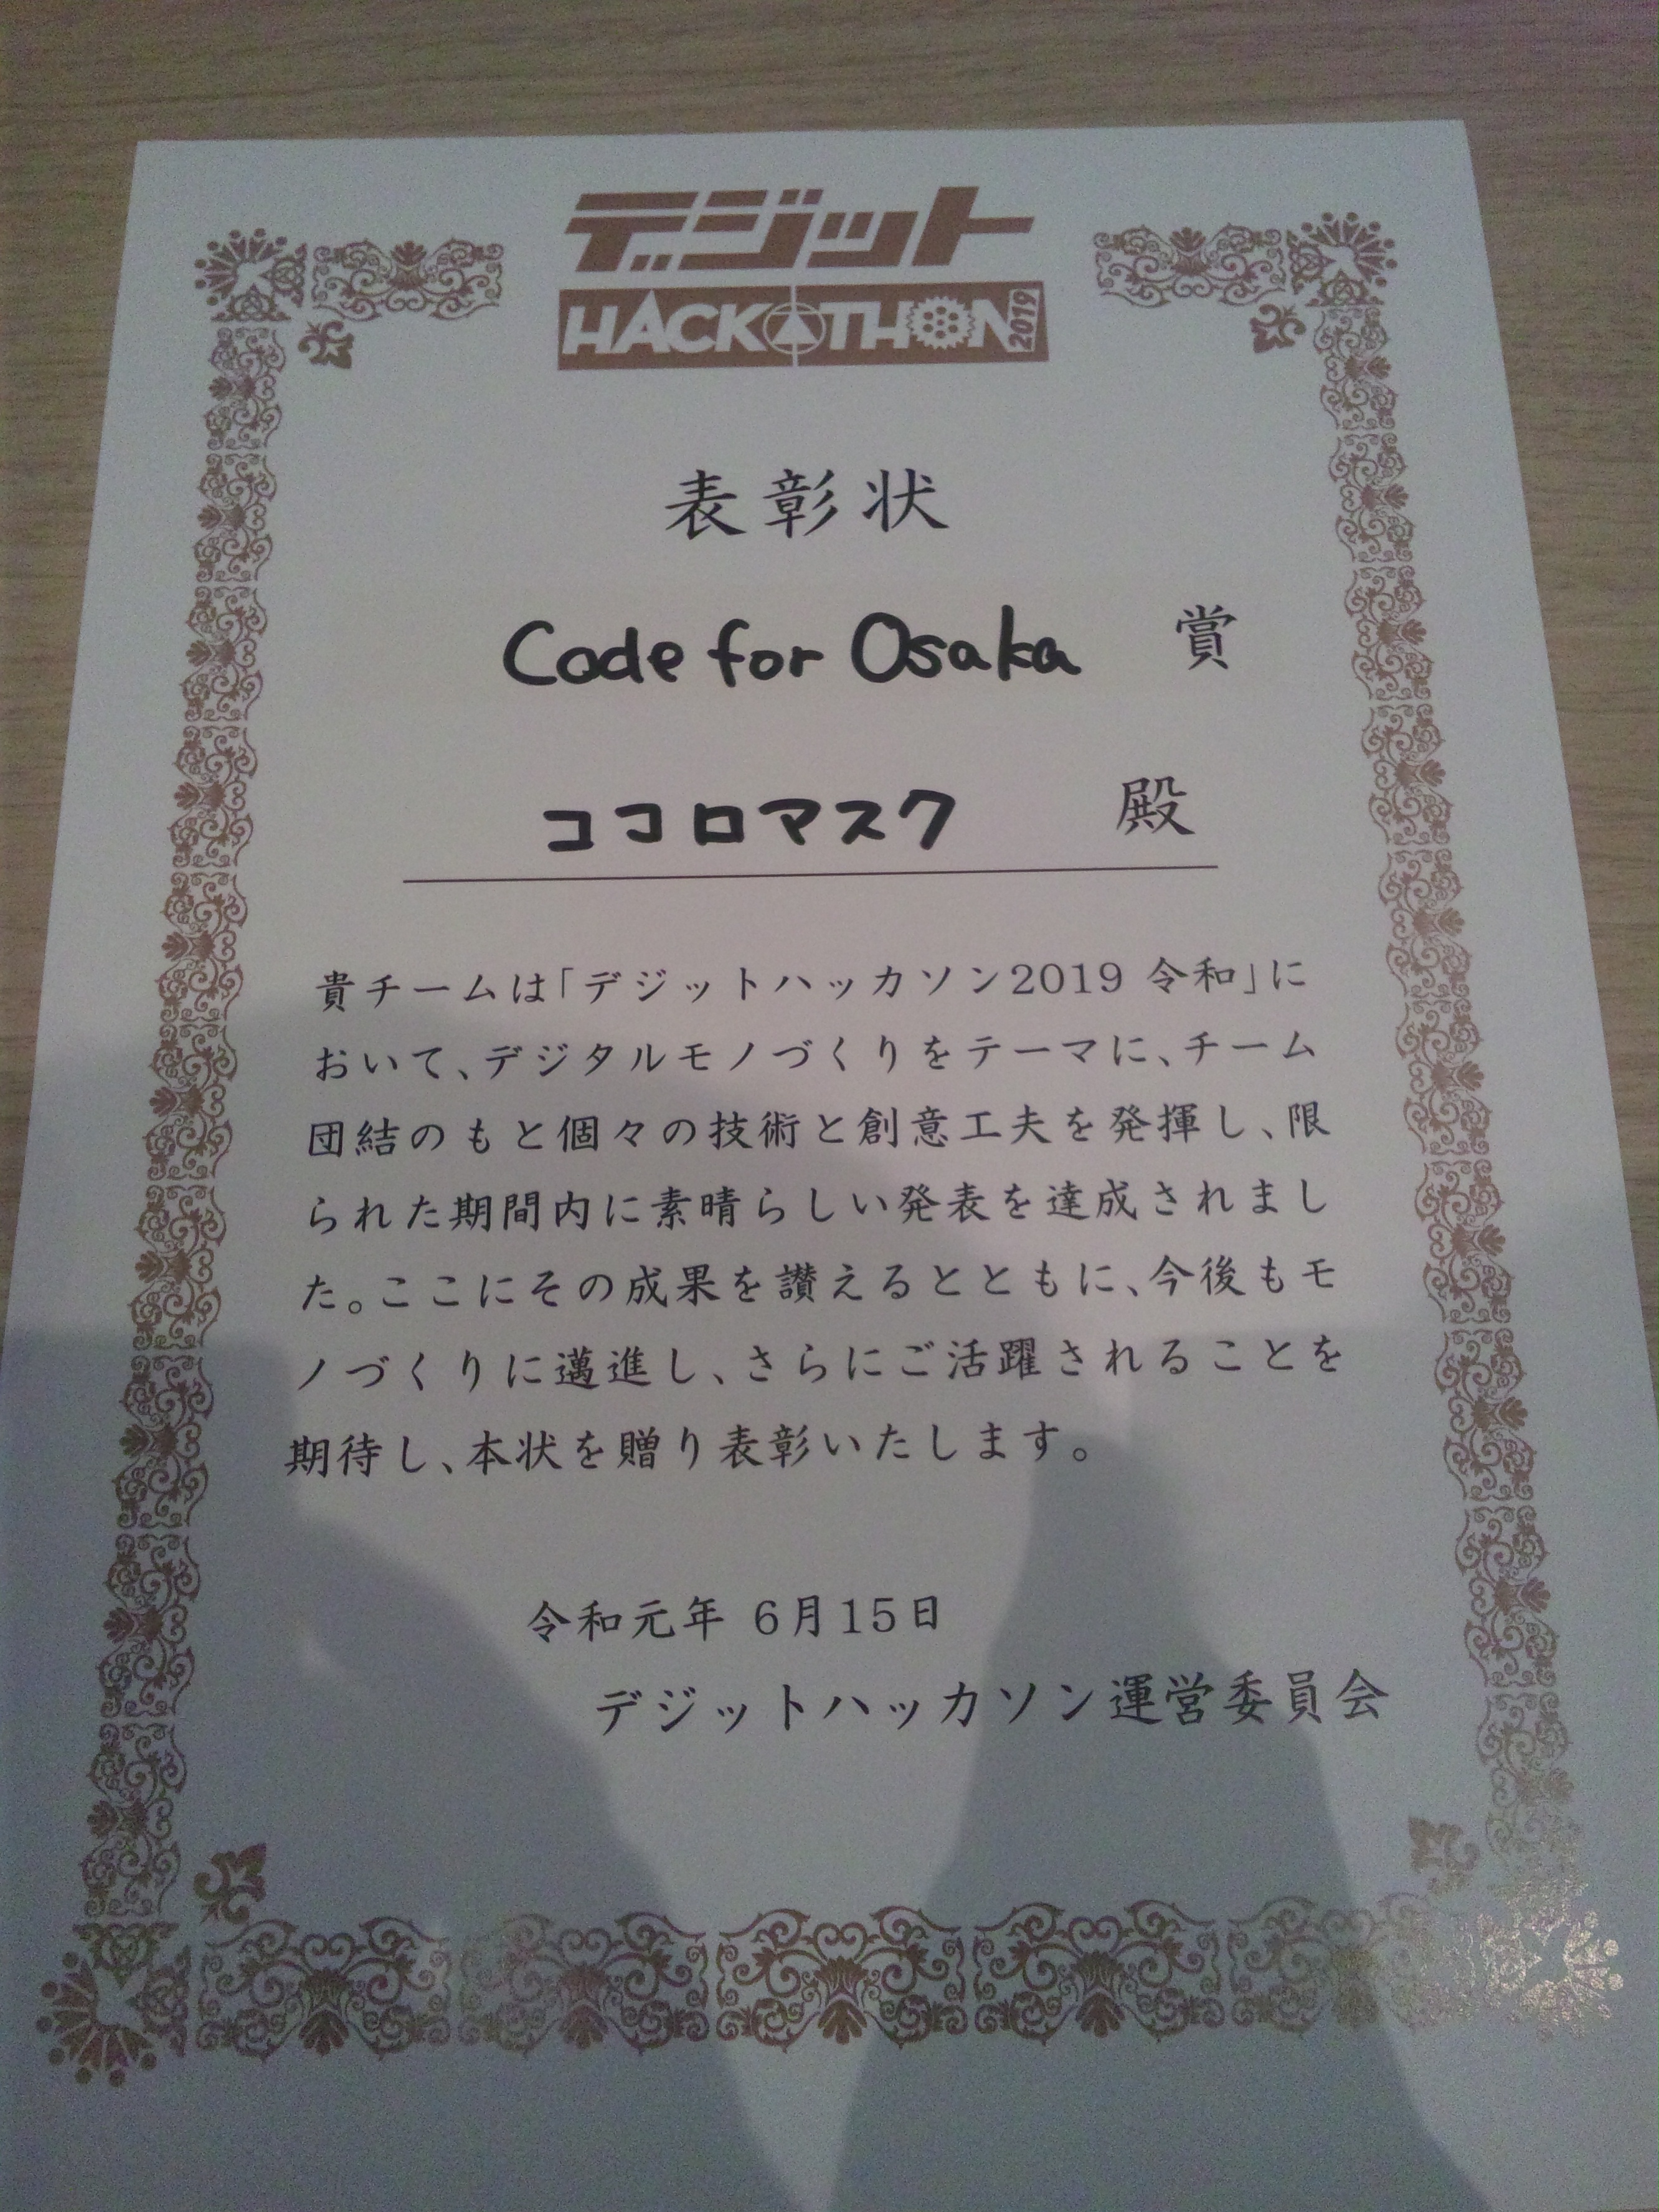 デジット
HACKATHON 2019
表彰状
Code for Osaka 賞
ココロマスク 殿
貴チームは「デジットハッカソン2019 令和」に
おいて、デジタルモノづくりをテーマに、チーム
団結のもと個々の技術と創意工夫を発揮し、限
られた期間内に素晴らしい発表を達成されまし
た。ここにその成果を讃えるとともに、今後もモ
ノづくりに邁進し、さらにご活躍されることを
期待し、本状を贈り表彰いたします。
令和元年 6月15日
デジットハッカソン運営委員会